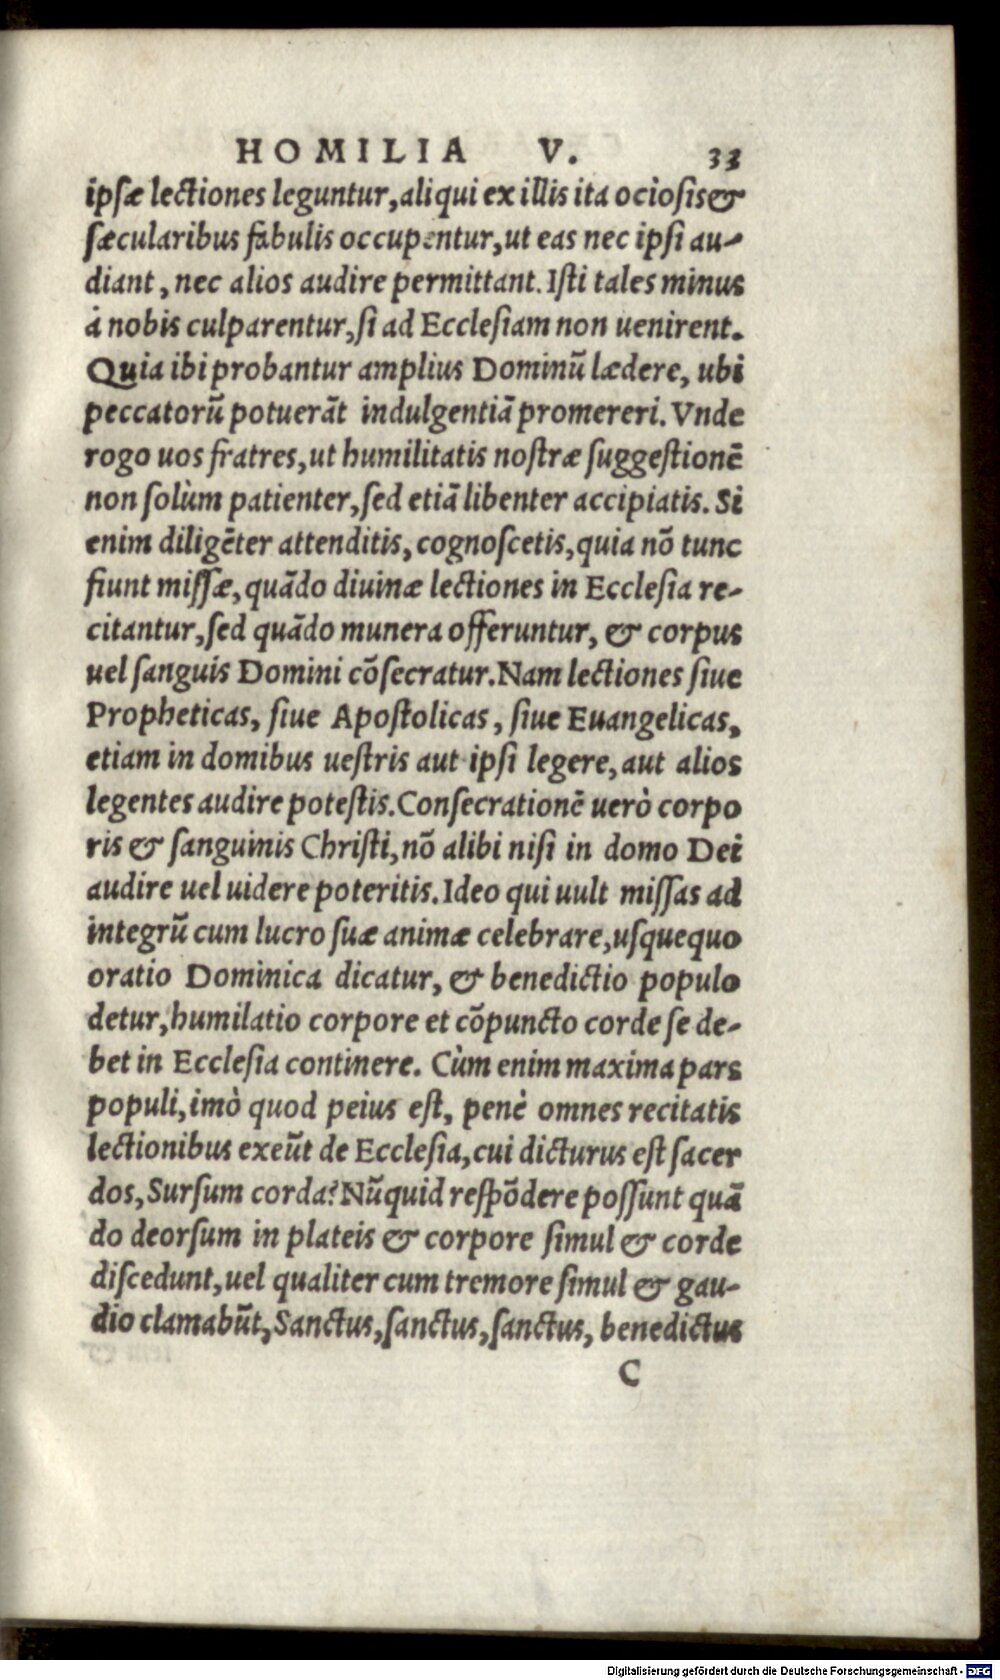 HOMILIA V. 33
ipsæ lectiones leguntur, aliqui ex illis ita ociosis &
sæcularibus fabulis occupentur, ut eas nec ipsi au-
diant, nec alios audire permittant. Isti tales minus
á nobis culparentur, si ad Ecclesiam non uenirent.
Quia ibi probantur amplius Dominū lædere, ubi
peccatorū potuerāt indulgentiā promereri. Vnde
rogo uos fratres, ut humilitatis nostræ suggestionē
non solùm patienter, sed etiā libenter accipiatis. Si
enim diligēter attenditis, cognoscetis, quia nō tunc
fiunt missæ, quādo diuinæ lectiones in Ecclesia re-
citantur, sed quādo munera offeruntur, & corpus
uel sanguis Domini cōsecratur. Nam lectiones siue
Propheticas, siue Apostolicas, siue Euangelicas,
etiam in domibus uestris aut ipsi legere, aut alios
legentes audire potestis. Consecrationē uerò corpo
ris & sanguinis Christi, nō alibi nisi in domo Dei
audire uel uidere poteritis. Ideo qui uult missas ad
integrū cum lucro suæ animæ celebrare, usquequo
oratio Dominica dicatur, & benedictio populo
detur, humilatio corpore et cōpuncto corde se de-
bet in Ecclesia continere. Cùm enim maxima pars
populi, imò quod peius est, penè omnes recitatis
lectionibus exeūt de Ecclesia, cui dicturus est sacer
dos, Sursum corda? Nūquid respōdere possunt quā
do deorsum in plateis & corpore simul & corde
discedunt, uel qualiter cum tremore simul & gau-
dio clamabūt, Sanctus, sanctus, sanctus, benedictus
C
Digitalisierung gefördert durch die Deutsche Forschungsgemeinschaft - DFG